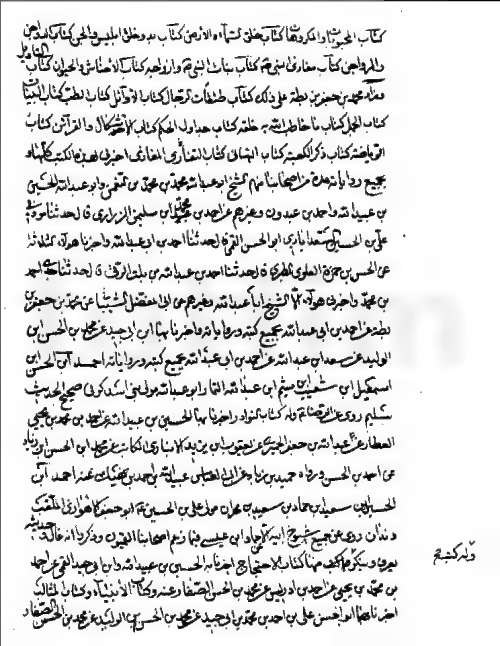 كتاب المحبوبات والمكروهات كتاب خلق السماء والارض كتاب بدو خلق ابليس والجن كتاب
والمرواجن كتاب مغازى النبى كتاب بنات النبى وازواجه كتاب الاحناش والحيوان كتاب التاويل
وزاد محمد بن جعفر بن بطة على ذلك كتاب طبقات الرجال كتاب الاوائل كتاب الطب كتاب التبيان
كتاب الجمل كتاب ما خاطب الله به خلقه كتاب جداول الحكم كتاب الاشكال والقرائن كتاب
الرياضة كتاب ذكر الكعبة كتاب التهانى كتاب التعازى اخبرنا بهذه الكتب كلها و
بجميع رواياته عدة من اصحابنا منهم الشيخ ابو عبد الله محمد بن محمد بن النعمن وابو عبد الله الحسين
بن عبيد الله واحمد بن عبدون وغيرهم عن احمد بن محمد بن سليمن الزرارى قال حدثنا مودبى
على بن الحسين السعدابادى ابو الحسن القمى قال حدثنا احمد بن ابى عبد الله واخبرنا هولاء الثلاثة
عن الحسن بن حمزة العلوى الطبرى قال حدثنا احمد بن عبد الله بن بنت البرقى قال حدثنا جدى احمد
بن محمد واخبرنا هولاء الا الشيخ ابا عبد الله وغيرهم عن ابى المفضل الشيبانى عن محمد بن جعفر بن
بطة عن احمد بن ابى عبد الله بجميع كتبه ورواياته واخبرنا بها ابن ابى جيد عن محمد بن الحسن بن
الوليد عن سعد بن عبد الله عن احمد بن ابى عبد الله بجميع كتبه ورواياته احمد بن الحسن بن
اسمعيل بن شعيب بن ميثم بن عبد الله التمار ابو عبد الله مولى بنى اسد كوفى صحيح الحديث
سليم روى عن الرضا وله كتاب النوادر اخبرنا به الحسين بن عبيد الله عن احمد بن محمد بن يحيى
العطار عن عبد الله بن جعفر الحميرى عن يعقوب بن يزيد الانبارى الكاتب عن محمد بن الحسن بن زياد
عن احمد بن الحسن ورواه حميد بن زياد عن ابى العباس عبيد الله بن احمد بن نهيك عنه احمد بن
الحسين بن سعيد بن حماد بن سعيد بن مهران مولى على بن الحسين ابو جعفر الاهوازى الملقب
دندان روى عن جميع شيوخ ابيه الا حماد بن عيسى فيما زعم اصحابنا القميون وذكروا انه غال وحديثه
يعرف وينكر وله كتب منها كتاب الاحتجاج اخبرنا به الحسين بن عبيد الله وابن ابى جيد القمى عن احمد
بن محمد بن يحيى عن احمد بن ادريس عن محمد بن الحسن الصفار عنه وكتاب الانبياء وكتاب المثالب
اخبرنا بهما ابو الحسن على بن احمد بن محمد بن ابى جيد عن محمد بن الحسن بن الوليد عن محمد بن الحسن الصفار